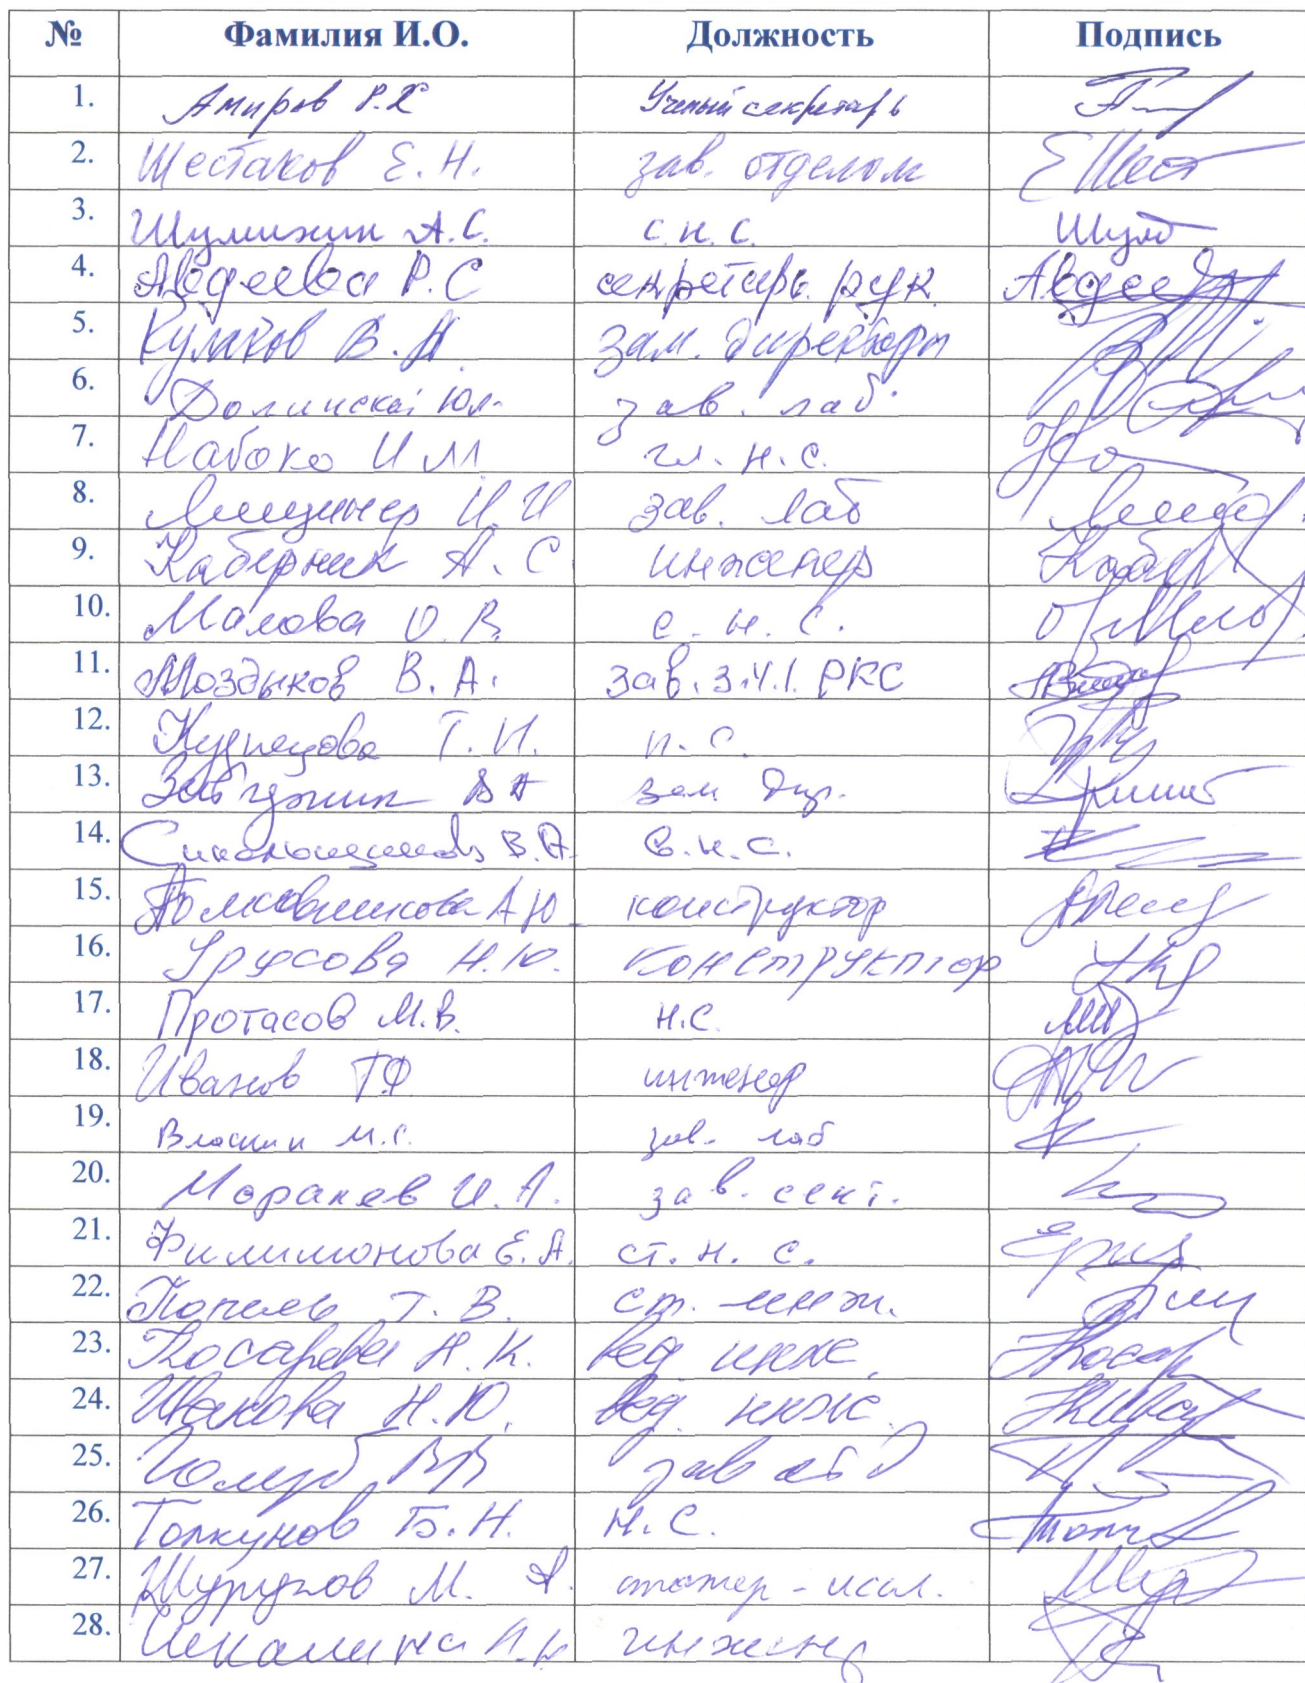 № Фамилия И.О. Должность Подпись
1. Амиров Р.Х Ученый секретарь
2. Шестаков Е.Н. зав. отделом ЕШест
3. Шумихин А.С. с.н.с. Шум
4. Авдеева Р.С секретарь рук. Авдее
5. Куликов В.Н. зам. директора
6. Долинская Ю.Л. зав. лаб.
7. Набоко И М гл. н.с.
8. Лищинер И.И зав. лаб
9. Каберник А.С инженер
10. Малова О.В. с.н.с.
11. Моздыков В.А. зав. 3.4.1. РКС
12. Кузнецова Т.И. н.с.
13. зам дир.
14. В.А. с.н.с.
15. Полковникова А Ю конструктор
16. Урусова Н.Ю. конструктор
17. Протасов М.В. Н.С.
18. Иванов ТФ инженер
19. Власкин М.С. зав. лаб
20. Моралев И.А. зав. сект.
21. Филимонова Е.А. ст. н. с.
22. Попель Т. В. ст. инж.
23. Косарева Н.К. вед инж. Косар
24. Ивакова Н.Ю. вед. инж.
25. Голуб ВВ зав
26. Толкунов Б.Н. Н.С.
27. Шурупов М. А. стажер-иссл.
28. инженер